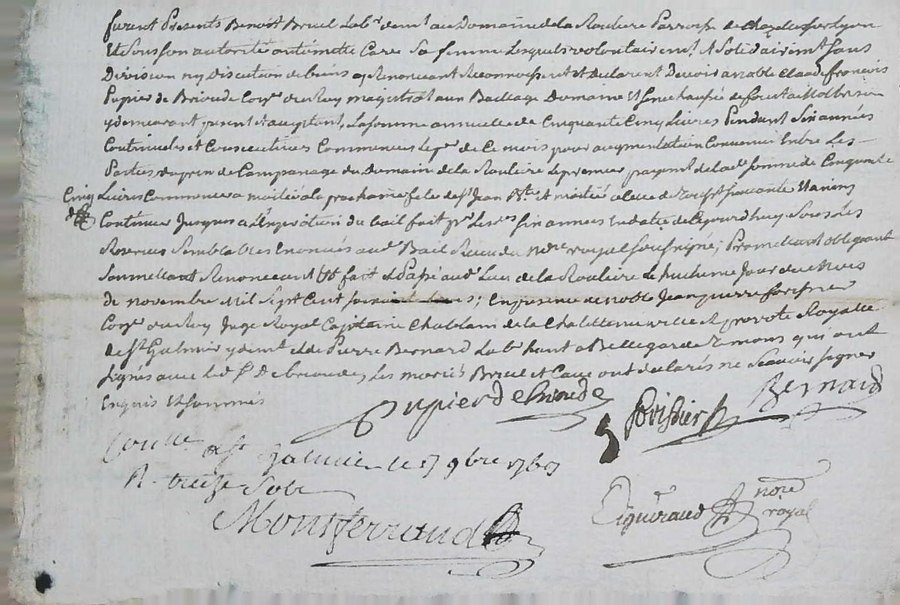 furent Presents Benoist Bruel Labr demt au Domaine de la Rouliere Parroisse de Chazelles sur Lyon
Et sous son autorité antoinette Cave Sa femme Lesquels volontairemt et Solidairemt sans
Division ny Discution de biens y Renoncant Reconnoissent et declarent Devoir a noble Claude francois
Pupier de Brioude Coner du Roy magistrat au Bailliage Domaine et senechaussée de forest a montbrison
y demeurant present et acceptant, La somme annuelle de Cinquante Cinq Livres Pendant six années
Continuelles et Consecutives Commencées le de Ce mois pour augmentation Convenue Entre Les
Parties du prix de du Domaine de la Rouliere Le premier payemt de lade somme de Cinquante
Cinq Livres Commencera moitié a la prochaine fete de st Jean Bte et moitié a la
Continuer Jusques a L'expiration du bail fait pr Les dts six années En date de Cejourdhuy Sous Les
Reserves Semblables Enoncées aud Bail Receu du nore royal soussigné; Promettant obligeant
Soumettant Renoncant &c fait et Passé aud Lieu de la Rouliere Le huitieme Jour du Mois
de novembre Mil Sept Cent soixante trois; En presence de noble Jean pierre forissier
Coner du Roy Juge Royal Capitaine Chatelain de la Chatellenie ville et prevoté Royalle
de st Galmier y demt et de Pierre Bernard Labr hant a Bellegarde Temoins qui ont
signés avec led sr De brioude, Les mariés Bruel et Cave ont declarés ne Scavoir signer
Enquis Et sommés
Pupier de brioude forissier Bernard
Conllé a st galmier le 17 9bre 1763
R treize Sols
Montferrand
nore royal